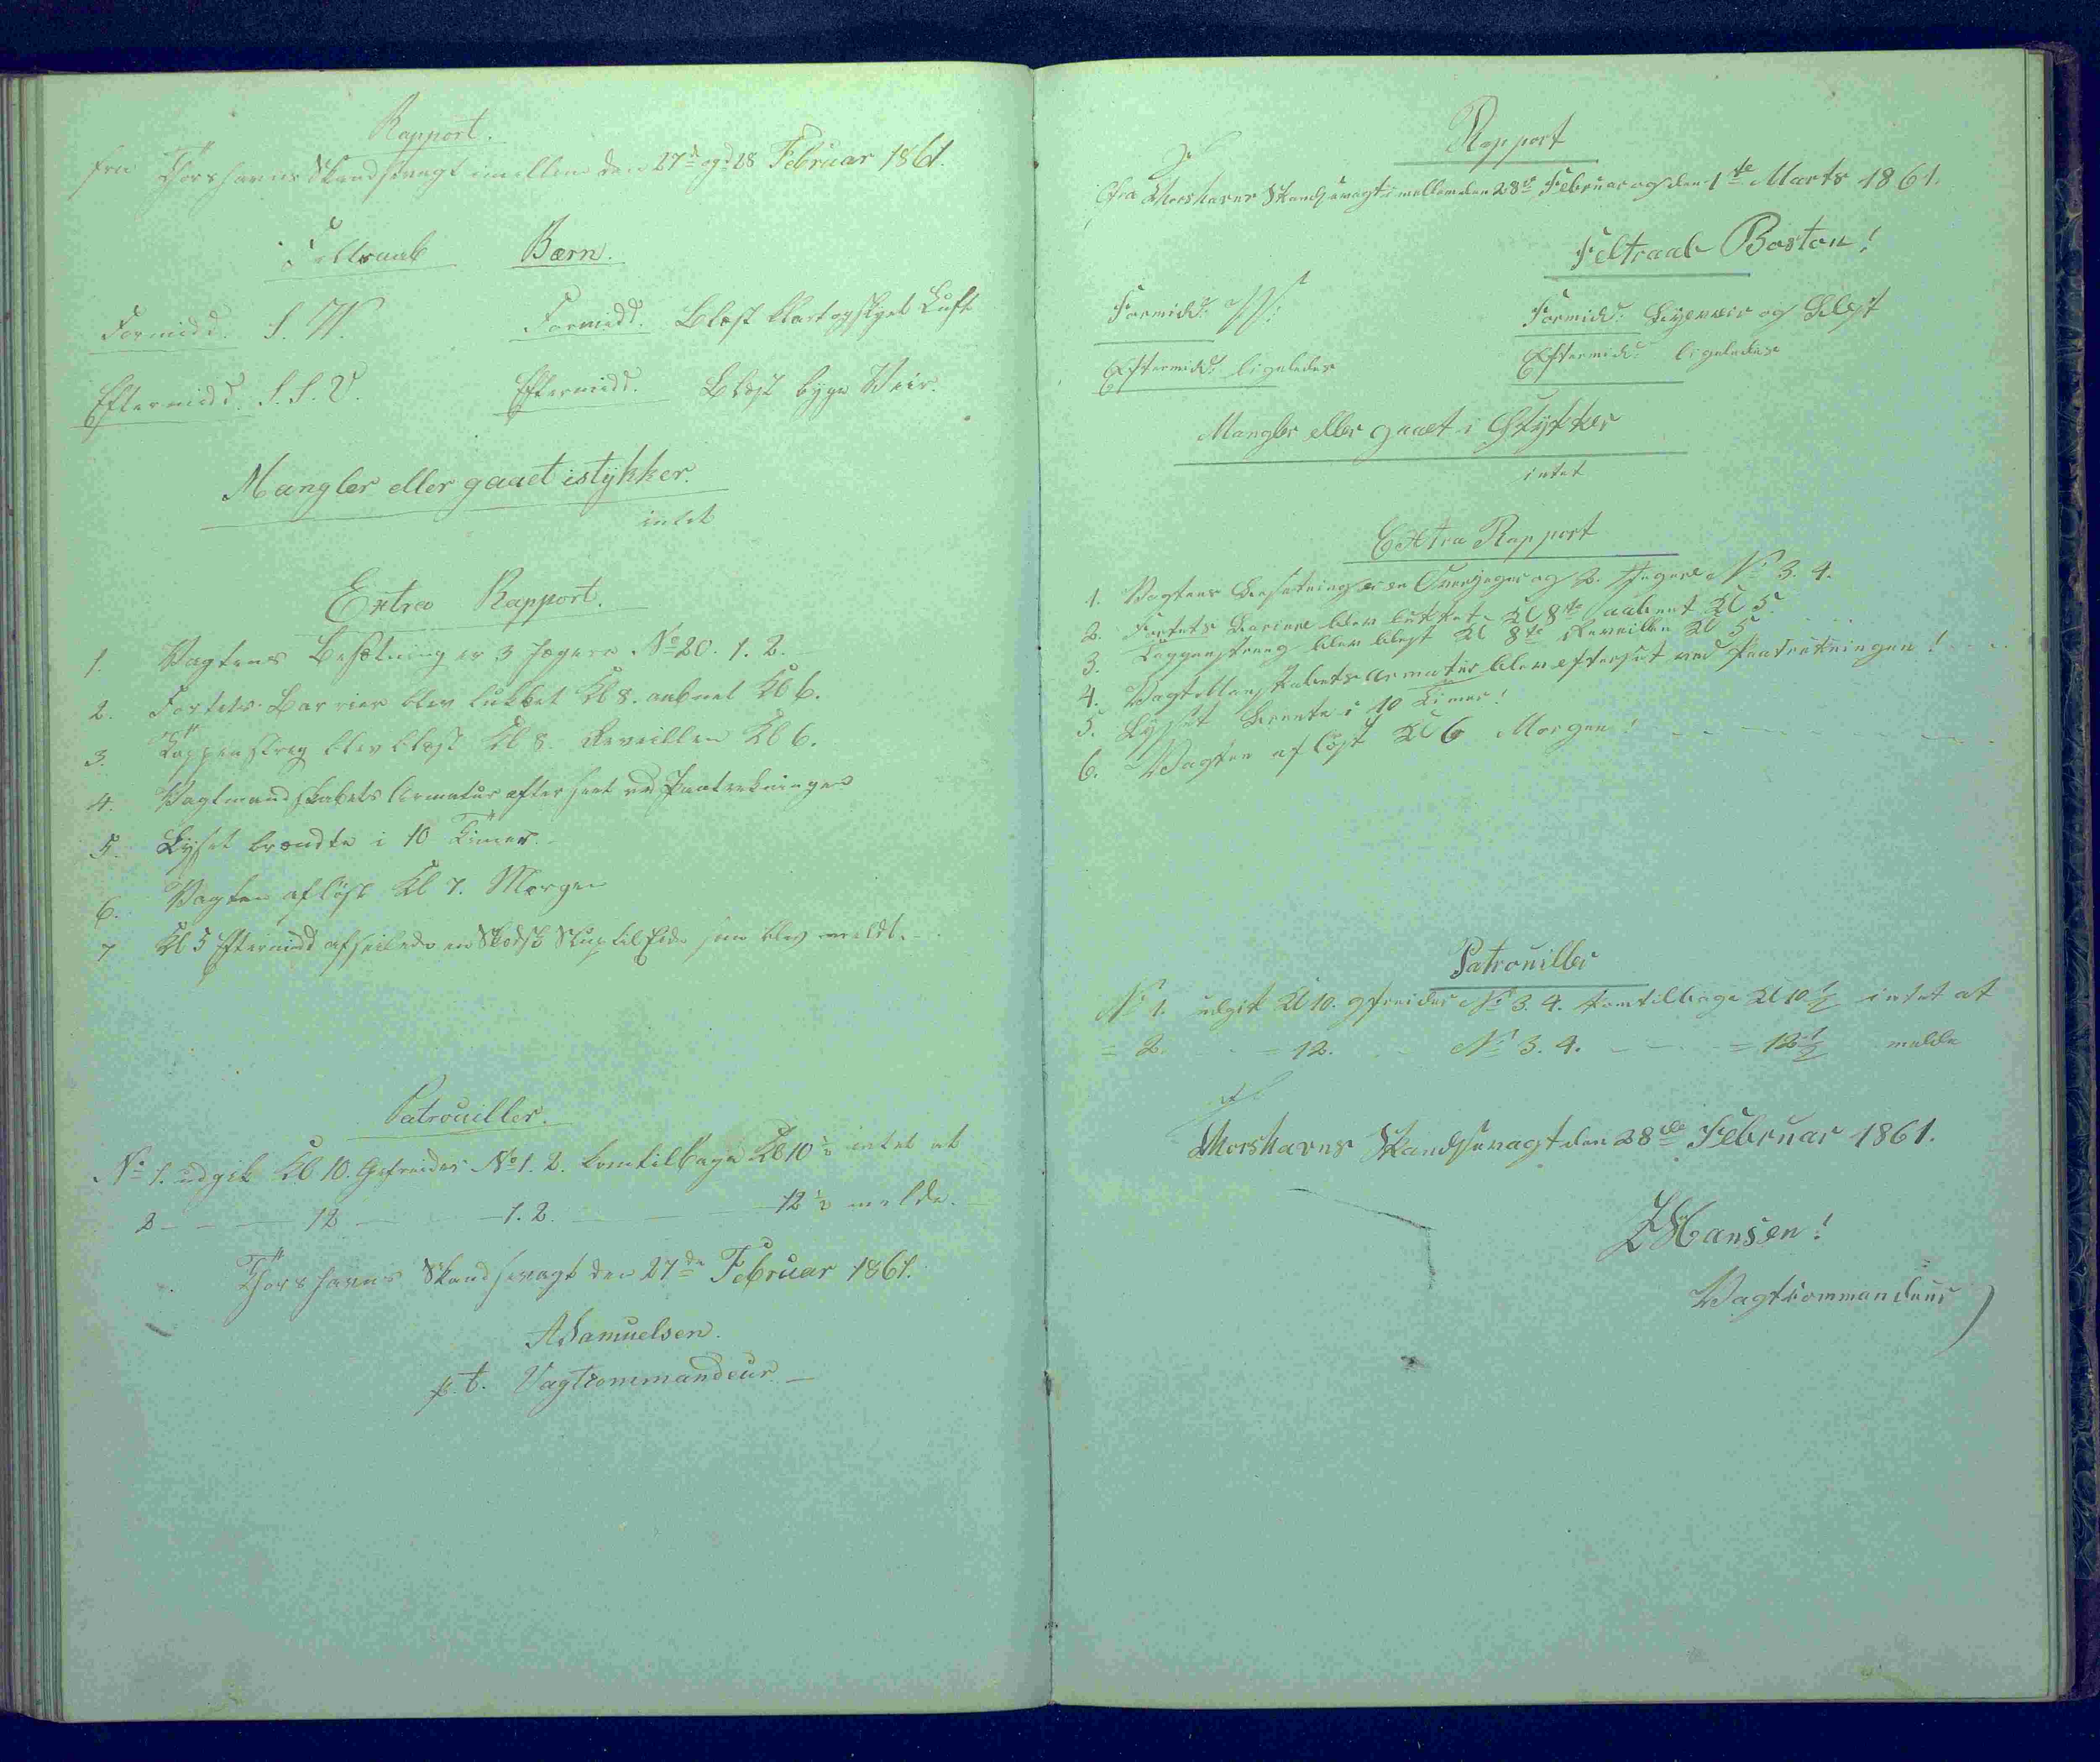 Rapport.
fra Thorshavns Skandsevagt imellem den 27d og d 28 Februar 1861.
Feltraab Bærn.
Formidd. S. W. Formidd. Blæst klart og skyet Luft
Eftermidd. S. S. V. Eftermidd. Blæst byge Veir.
Mangler eller gaaet istykker.
intet
Extra Rapport.
1. Vagtens Besætning er 3 Jægere No 20. 1. 2.
2. Fortets Barriere blev lukket Kl 8. aabnet Kl 6.
3. Tappenstreg blev blæst Kl 8. Reveillen Kl 6.
4. Vagtmandskabets Armatur efterseet ved Paatrækningen
5. Lyset brændte i 10 Timer.
6. Vagten afløst Kl 7. Morgen
7 Kl 5 Eftermidd afseilede en Skotsk Slup til Eide som blev meldt.
Patrouiller.
No 1. udgik Kl 10. Gefreider No 1. 2. kom tilbage Kl 10 ½ intet at
2 - - - 12 - - 1. 2. - - 12 ½ melde.
Thorshavns Skandsevagt den 27de Februar 1861.
A Samuelsen.
p. t. Vagtcommandeur.
Rapport
fra Thorshavns Skandsevagt imellem den 28de Februar og den 1ste Marts 1861.
Feltraab Boston!
Formidd. Formidd. og Blæst
Eftermidd. ligeledes Eftermidd. ligeledes
Mangler eller gaaet i Stykker
intet
Extra Rapport
1. Vagtens Besætning er en Overjæger og 2. Jægere No 3. 4.
2. Fortets Bariere blev lukket Kl 8te aabnet Kl 5.
3. Tappenstreng blev blæst Kl 8te Reveillen Kl 5
4. Vagtmandskabets armatur blev efterset ved Paatrækningen!
5. Lyset brænte i 10 Timer!
6. Vagten afløst Kl 6 Morgen!
Patrouiller
No 1. udgik Kl 10. gfreider No 3. 4. kom tilbage Kl 10 ½ intet at
= 2. - - = 12. - - No 3. 4. - - = 12 ½ melde
Thorshavns Skandsevagt den 28de Februar 1861.
Hansen!
Vagtcommandeur